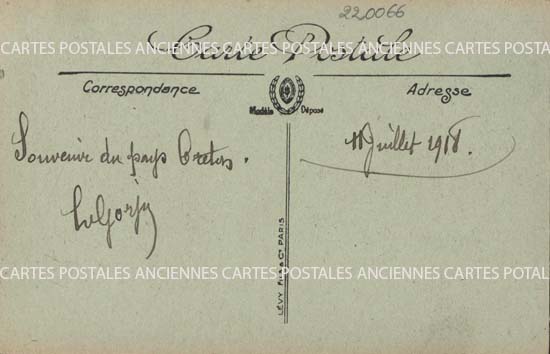 220066
Carte Postale
CARTES POSTALES ANCIENNES CARTES POSTALES ANCIENNES CARTES POSTALES
Correspondance
Adresse
Modèle Déposé
Souvenir du pays Breton.
11 juillet 1918.
LÉVY FILS & Cie PARIS
CARTES POSTALES ANCIENNES CARTES POSTALES ANCIENNES CARTES POTALE